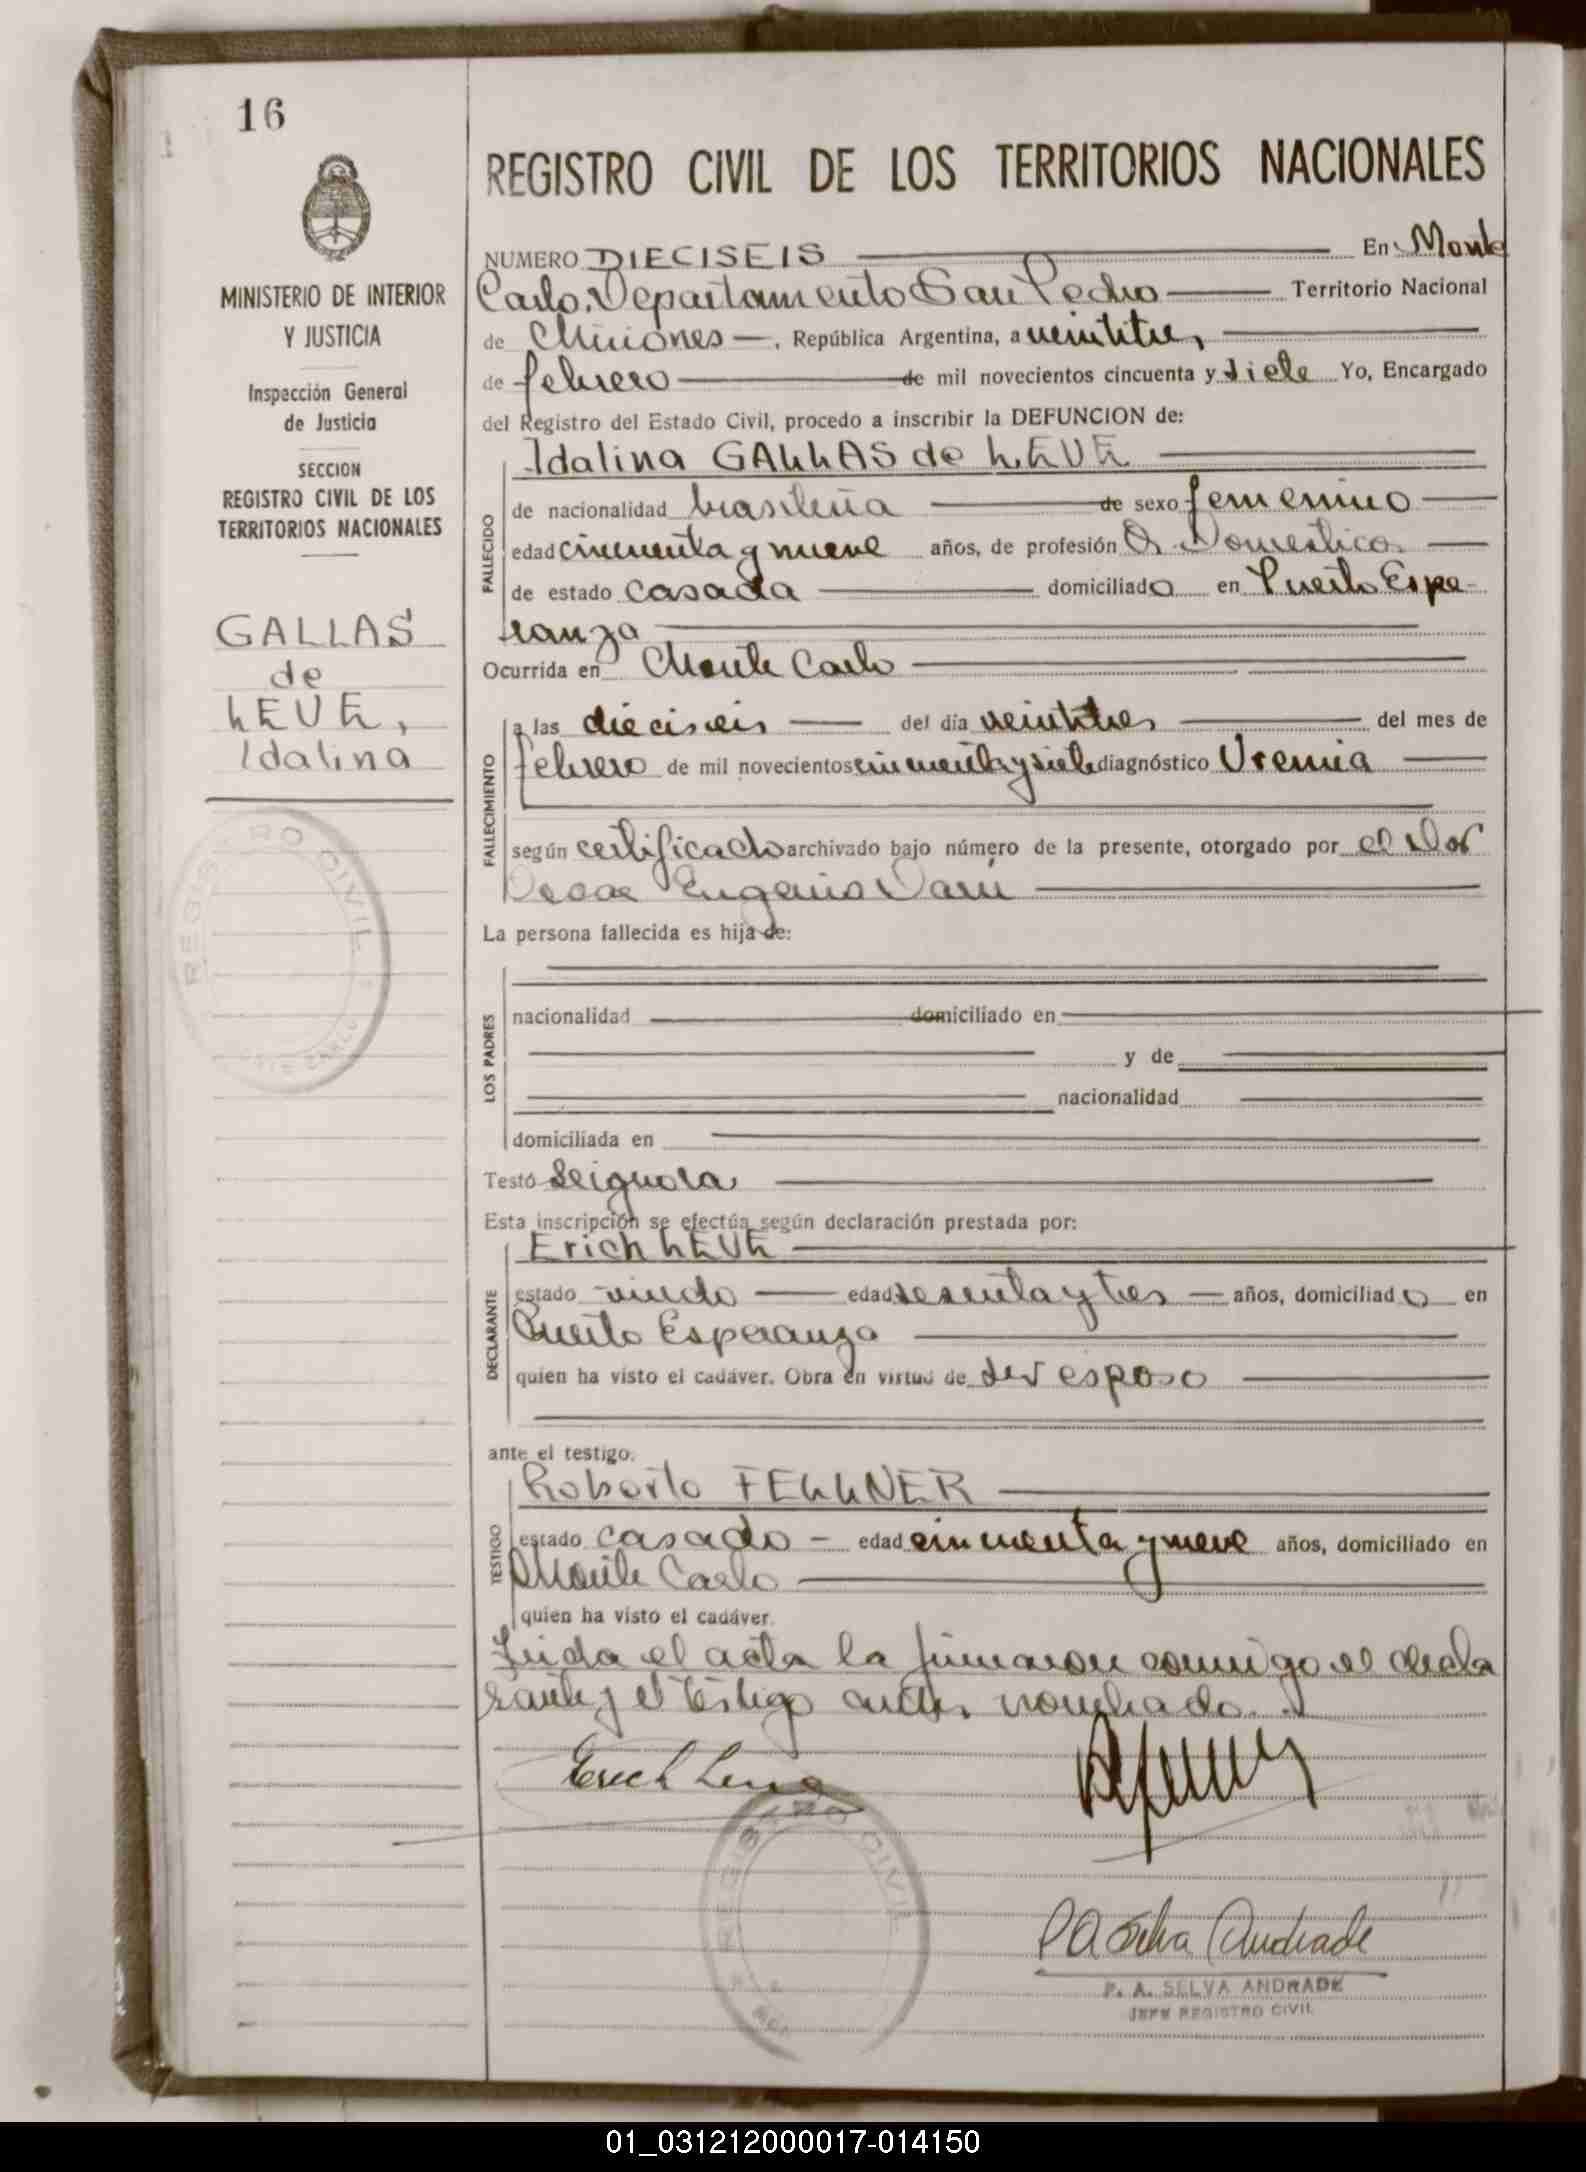 16
MINISTERIO DE INTERIOR
Y JUSTICIA
Inspección General
de Justicia
SECCION
REGISTRO CIVIL DE LOS
TERRITORIOS NACIONALES
GALLAS
de
LEVE,
Idalina
REGISTRO CIVIL
REGISTRO CIVIL DE LOS TERRITORIOS NACIONALES
NUMERO DIECISEIS En Monte
Carlo, Departamento San Pedro Territorio Nacional
de Misiones, República Argentina, a veintitres
de febrero de mil novecientos cincuenta y siete Yo, Encargado
del Registro del Estado Civil, procedo a inscribir la DEFUNCION de:
Idalina GALLAS de LEVE
FALLECIDO
de nacionalidad brasileña de sexo femenino
edad cincuenta y nueve años, de profesión Q. Domesticos
de estado casada domiciliado en Puerto Espe-
ranza
Ocurrida en Monte Carlo
FALLECIMIENTO
a las dieciseis del día veintitres del mes de
febrero de mil novecientos cincuenta y siete diagnóstico Uremia
según certificado archivado bajo número de la presente, otorgado por el Dor
Eugenio
La persona fallecida es hija de:
LOS PADRES
nacionalidad domiciliado en
y de
nacionalidad
domiciliada en
Testó Se ignora
Esta inscripción se efectúa según declaración prestada por:
Erich LEVE
DECLARANTE
estado viudo edad sesenta y tres años, domiciliado en
Puerto Esperanza
quien ha visto el cadáver. Obra en virtud de ser esposo
ante el testigo.
Roberto FELLNER
TESTIGO
estado casado edad cincuenta y nueve años, domiciliado en
Monte Carlo
quien ha visto el cadáver.
Leida el acta la firmaron conmigo el decla
rante y el testigo antes nombrado.
Erich Leve
REGISTRO CIVIL
P A Selva Andrade
P. A. SELVA ANDRADE
JEFE REGISTRO CIVIL
01_031212000017-014150